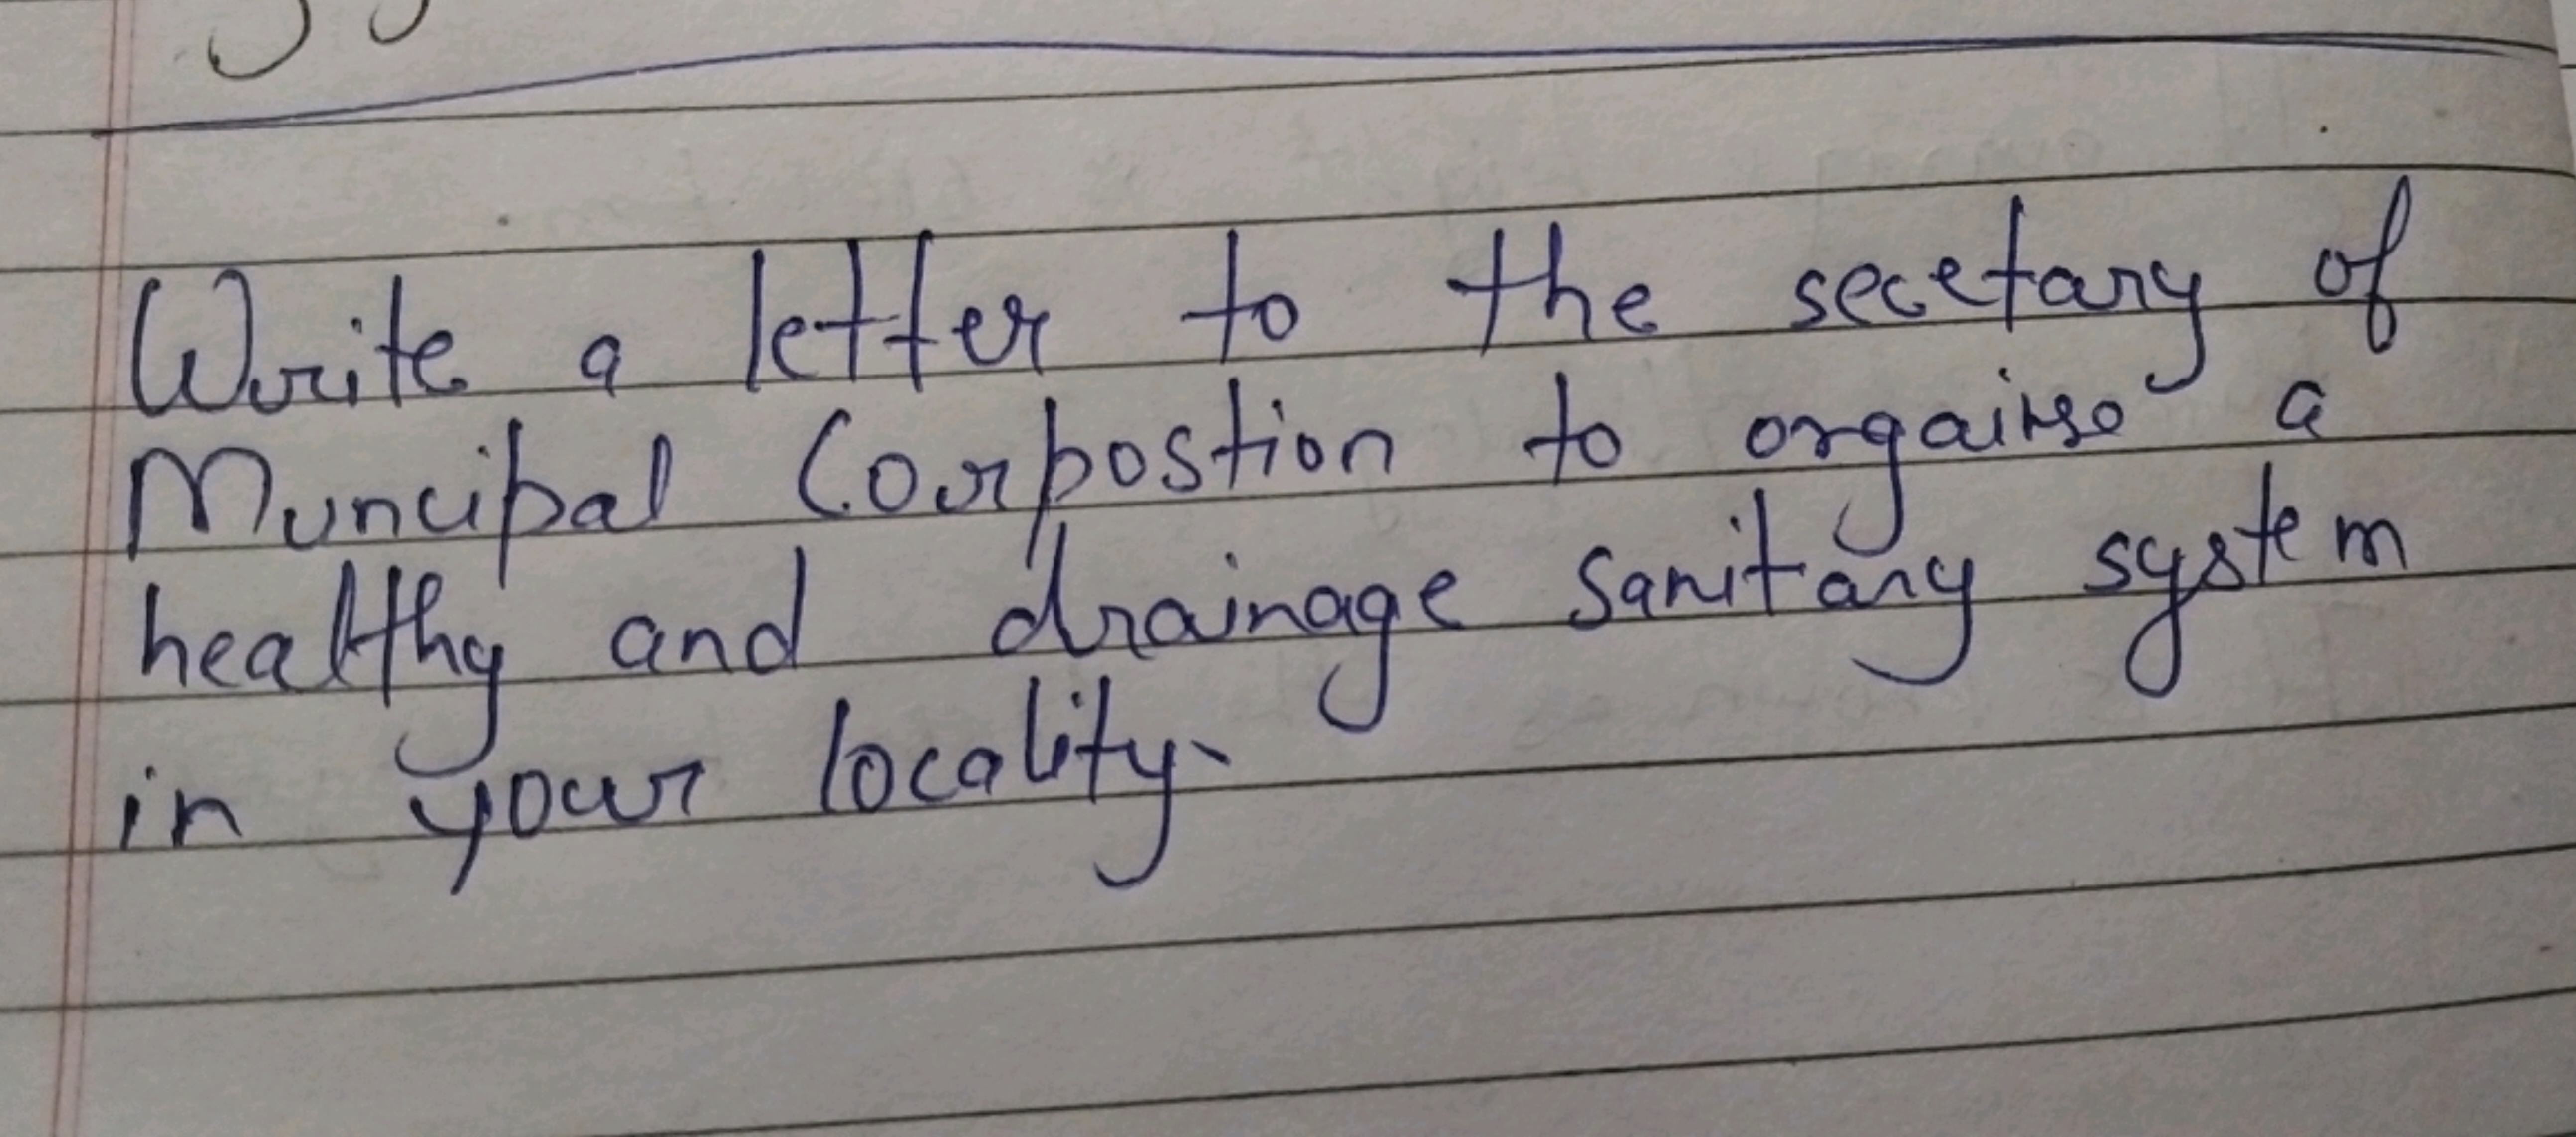 Write a letter to the secetary of
Muncipal Corpostion to orgainse a
healthy and drainage sanitary system
in your locality.